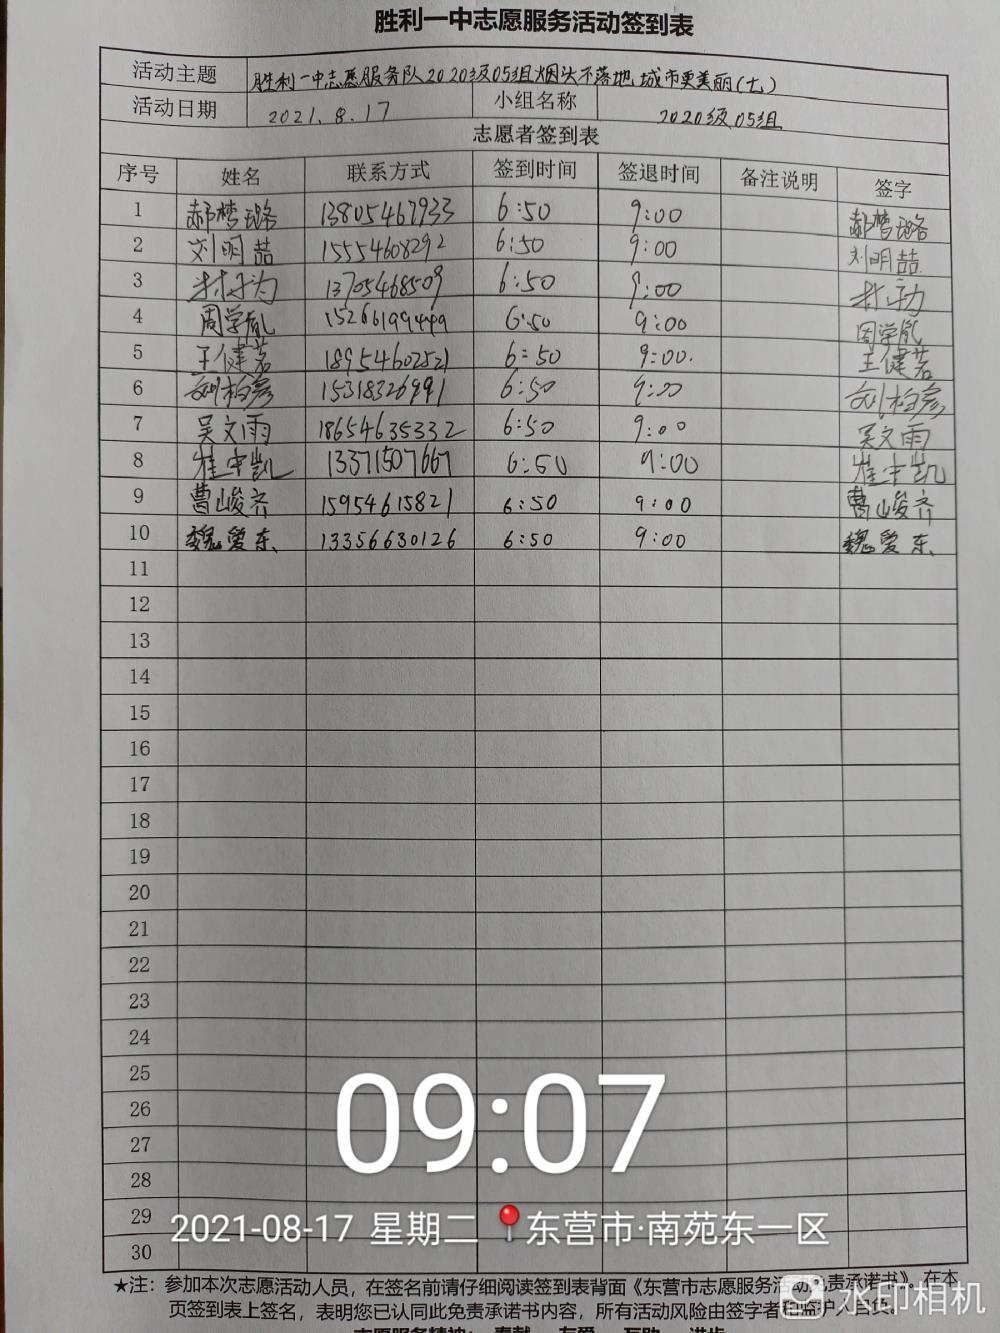 胜利一中志愿服务活动签到表
活动主题 胜利一中志愿服务队2020级05组烟头不落地,城市更美丽(七)
活动日期 2021.8.17 小组名称 2020级05组
志愿者签到表
序号 姓名 联系方式 签到时间 签退时间 备注说明 签字
1 郝梦璐 13805467933 6:50 9:00 郝梦璐
2 刘明喆 15554608292 6:50 9:00 刘明喆
3 13705468509 6:50 9:00
4 周学胤 15266199449 6:50 9:00 周学胤
5 王健茗 18954602521 6:50 9:00. 王健茗
6 刘柏彦 15318326991 6:50 9:00 刘柏彦
7 吴文雨 18654635332 6:50 9:00 吴文雨
8 崔中凯 13371507667 6:50 9:00 崔中凯
9 曹峻齐 15954615821 6:50 9:00 曹峻齐
10 魏爱东 13356630126 6:50 9:00 魏爱东
11
12
13
14
15
16
17
18
19
20
21
22
23
24
25
26
27
28
29
30
09:07
2021-08-17 星期二 东营市·南苑东一区
★注: 参加本次志愿活动人员,在签名前请仔细阅读签到表背面《东营市志愿服务活动免责承诺书》。在本
页签到表上签名,表明您已认同此免责承诺书内容,所有活动风险由签字者和监护人自负。
水印相机
志愿服务精神: 奉献 友爱 互助 进步